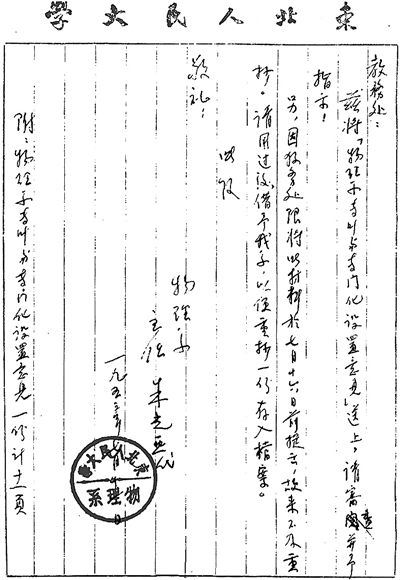 東北人民大學
教務处：
茲将「物理系专业与专门化設置意見」送上，請審閱並予
指示！
另，因教务处限将此材料於七月十六日前提交，故来不及重
抄。請用过後借予我系，以便重抄一份存入檔案。
此致
敬礼！
物理系
主任 朱光亚
一九五 年 月 日
東北人民大學
物理系
附：物理系专业与专门化設置意見一份計十一頁